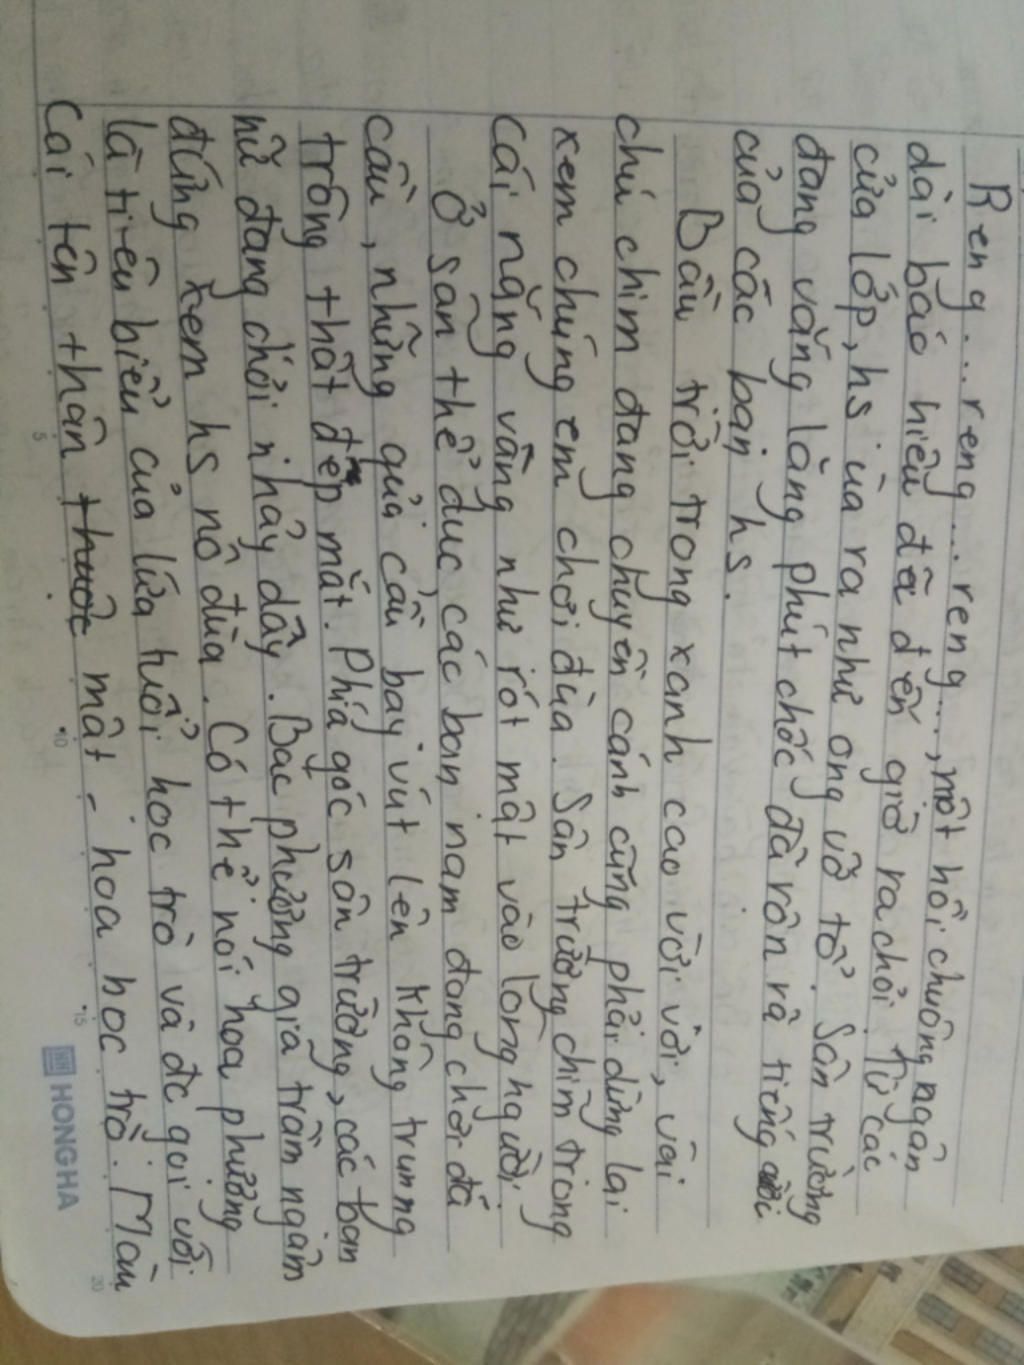 Reng... reng... reng..., một hồi chuông ngân
dài báo hiệu đã đến giờ ra chơi. Từ các
cửa lớp, hs ùa ra như ong vỡ tổ. Sân trường
đang vắng lặng phút chốc đã rộn rã tiếng cười
của các bạn hs.
Bầu trời trong xanh cao vời vời, vài
chú chim đang chuyền cành cũng phải dừng lại
xem chúng em chơi đùa. Sân trường chìm trong
cái nắng vàng như rót mật vào lòng người.
Ở sân thể dục, các bạn nam đang chơi đá
cầu, những quả cầu bay vút lên không trunng
trông thật đẹp mắt. Phía góc sân trường, các bạn
nữ đang chơi nhảy dây. Bác phượng già trầm ngâm
đứng xem hs nô đùa. Có thể nói hoa phượng
là tiêu biểu của lứa tuổi học trò và đc gọi với
cái tên thân thuộc mật - hoa học trò. Màu
5 10 15 20
HONG HA